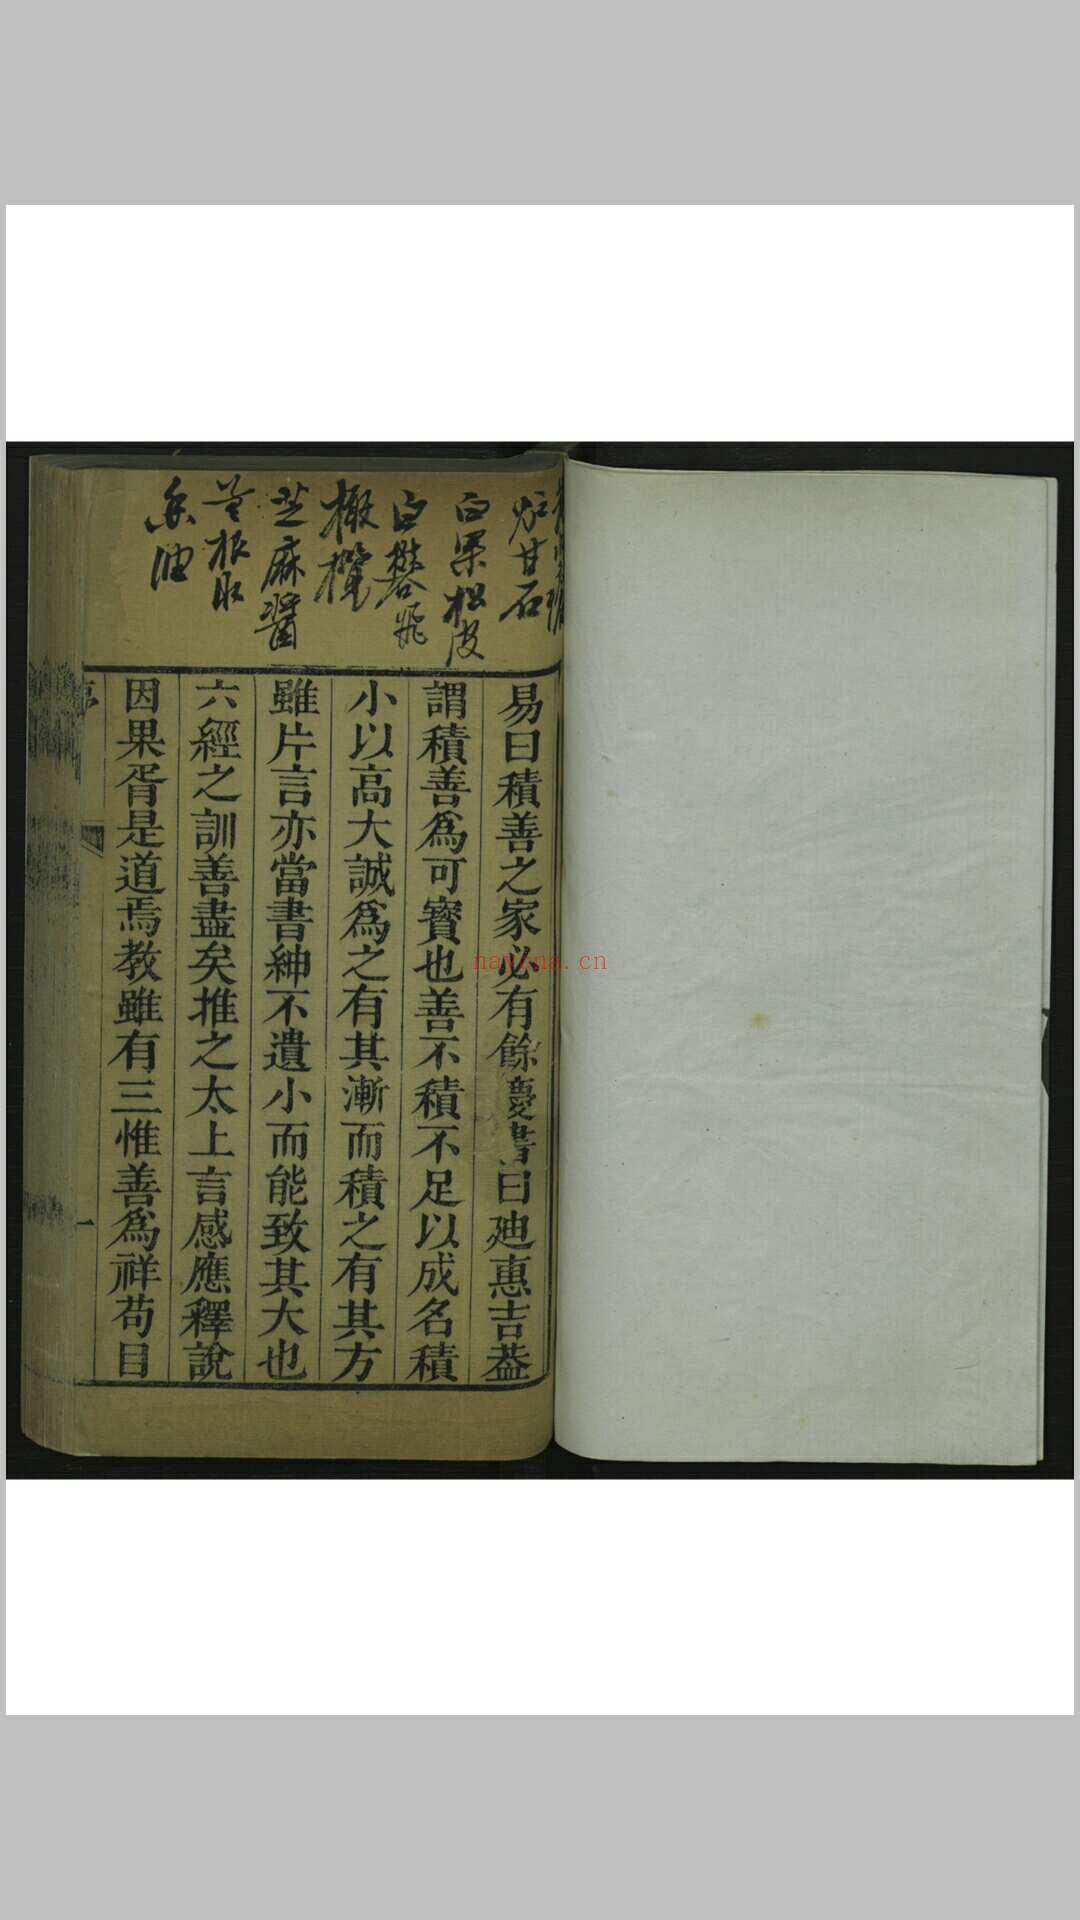 炉甘石
白果松皮
白礬飛
橄欖
芝麻醬
香油
易曰積善之家必有餘慶書曰廸惠吉葢
謂積善為可寳也善不積不足以成名積
小以高大誠為之有其漸而積之有其方
雖片言亦當書紳不遺小而能致其大也
六經之訓善盡矣推之太上言感應釋說
因果胥是道焉教雖有三惟善為祥苟目
序
一
nayona.cn